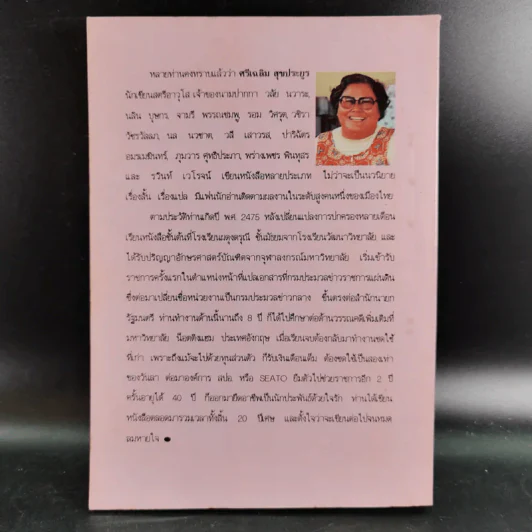 หลายท่านคงทราบแล้วว่า ศรีเฉลิม สุขประยูร
นักเขียนสตรีอาวุโส เจ้าของนามปากกา วลัย นวาระ,
นลิน บุษกร, จามรี พรรณชมพู, รอม วิศรุต, วชิรา
วัชรวัลลภ, นล นวชาต, วลี เสาวรส, ปาริฉัตร
อมรเมฆินทร์, ภุมวาร ศุทธิประภา, พร่างเพชร พินทุสร
และ รวินท์ เวโรจน์ เขียนหนังสือหลายประเภท ไม่ว่าจะเป็นนวนิยาย
เรื่องสั้น เรื่องแปล มีแฟนนักอ่านติดตามผลงานในระดับสูงคนหนึ่งของเมืองไทย
ตามประวัติท่านเกิดปี พ.ศ. 2475 หลังเปลี่ยนแปลงการปกครองหลายเดือน
เรียนหนังสือชั้นต้นที่โรงเรียนผดุงดรุณี ชั้นมัธยมจากโรงเรียนวัฒนาวิทยาลัย และ
ได้รับปริญญาอักษรศาสตร์บัณฑิตจากจุฬาลงกรณ์มหาวิทยาลัย เริ่มเข้ารับ
ราชการครั้งแรกในตำแหน่งหน้าที่แปลเอกสารที่กรมประมวลข่าวราชการแผ่นดิน
ซึ่งต่อมาเปลี่ยนชื่อหน่วยงานเป็นกรมประมวลข่าวกลาง ขึ้นตรงต่อสำนักนายก
รัฐมนตรี ท่านทำงานด้านนี้นานถึง 8 ปี ก็ได้ไปศึกษาต่อด้านวรรณคดีเพิ่มเติมที่
มหาวิทยาลัย น็อตติงแฮม ประเทศอังกฤษ เมื่อเรียนจบต้องกลับมาทำงานชดใช้
ที่เก่า เพราะถึงแม้จะไปด้วยทุนส่วนตัว ก็รับเงินเดือนเต็ม ต้องชดใช้เป็นสองเท่า
ของวันลา ต่อมาองค์การ สปอ. หรือ SEATO ยืมตัวไปช่วยราชการอีก 2 ปี
ครั้นอายุได้ 40 ปี ก็ออกมายึดอาชีพเป็นนักประพันธ์ด้วยใจรัก ท่านได้เขียน
หนังสือตลอดมารวมเวลาทั้งสิ้น 20 ปีเศษ และตั้งใจว่าจะเขียนต่อไปจนหมด
ลมหายใจ ●